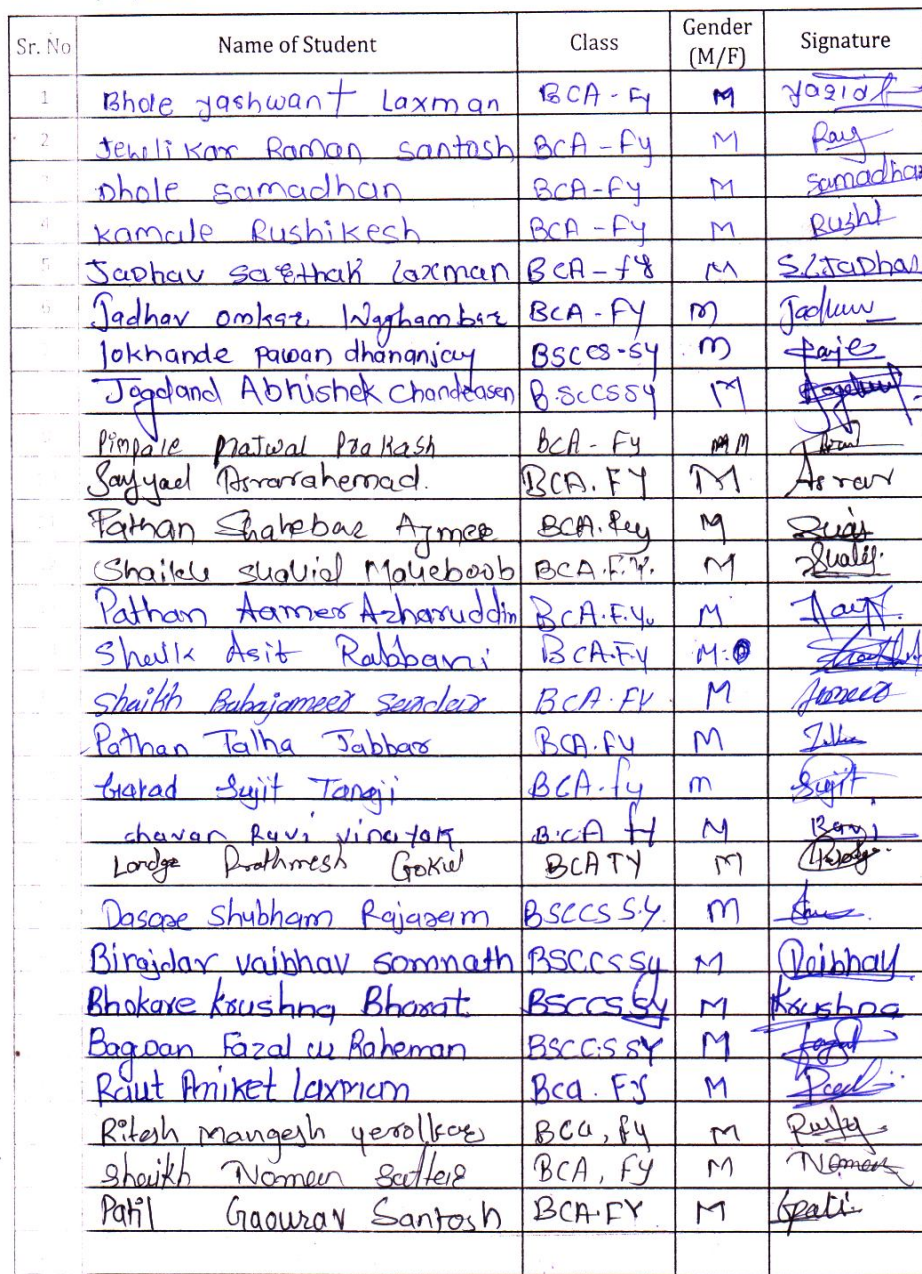 Sr. No Name of Student Class Gender (M/F) Signature
1 Bhole yashwant Laxman BCA - Fy M
2 Jewlikar Raman santosh BCA - Fy M Ray
3 Dhole samadhan BCA - Fy M samadhan
4 kamale Rushikesh BCA - Fy M Rushi
5 JaDhav sarthak laxman BCA - fy M S.L.JaDhav
6 Jadhav omkar Waghambar BCA - FY m Jadhav
lokhande pawan dhananjay BSCCS-SY m
Jogdand Abhishek Chandrasen B.ScCSSY M
Pimpale Prajwal Prakash BCA - Fy M M
Sayyad Asrarahemad. BCA. FY M Asrar
Pathan Shahebaz Azmer BCA. Fey M
Shaikh Shahid Maheboob BCA.F.Y. M
Pathan Aamer Azharuddin BCA.F.Y. M
Sheik Asif Rabbani BCA.F.Y M
Shaikh Babajameer Sardar BCA.FY M Jameer
Pathan Talha Jabbar BCA.fy M
Garad Sujit Tanaji BCA.fy m Sujit
chavan Ravi vinayak B.CA fy M Ravi
Londge Prathmesh Gokul BCA TY M
Dasare Shubham Rajaram BSCCS S.Y. M
Birajdar vaibhav somnath BSCCS Sy M Vaibhav
Bhokare krushna Bharat BSCCS SY M Krushna
Bagwan Fazal ur Raheman BSCCS SY M
Raut Aniket laxman Bca. FY M
Ritesh mangesh yerolkar BCa, fy M
Shaikh Noman Sattar BCA, FY M Noman
Patil Gaourav Santosh BCA.FY M Gpati